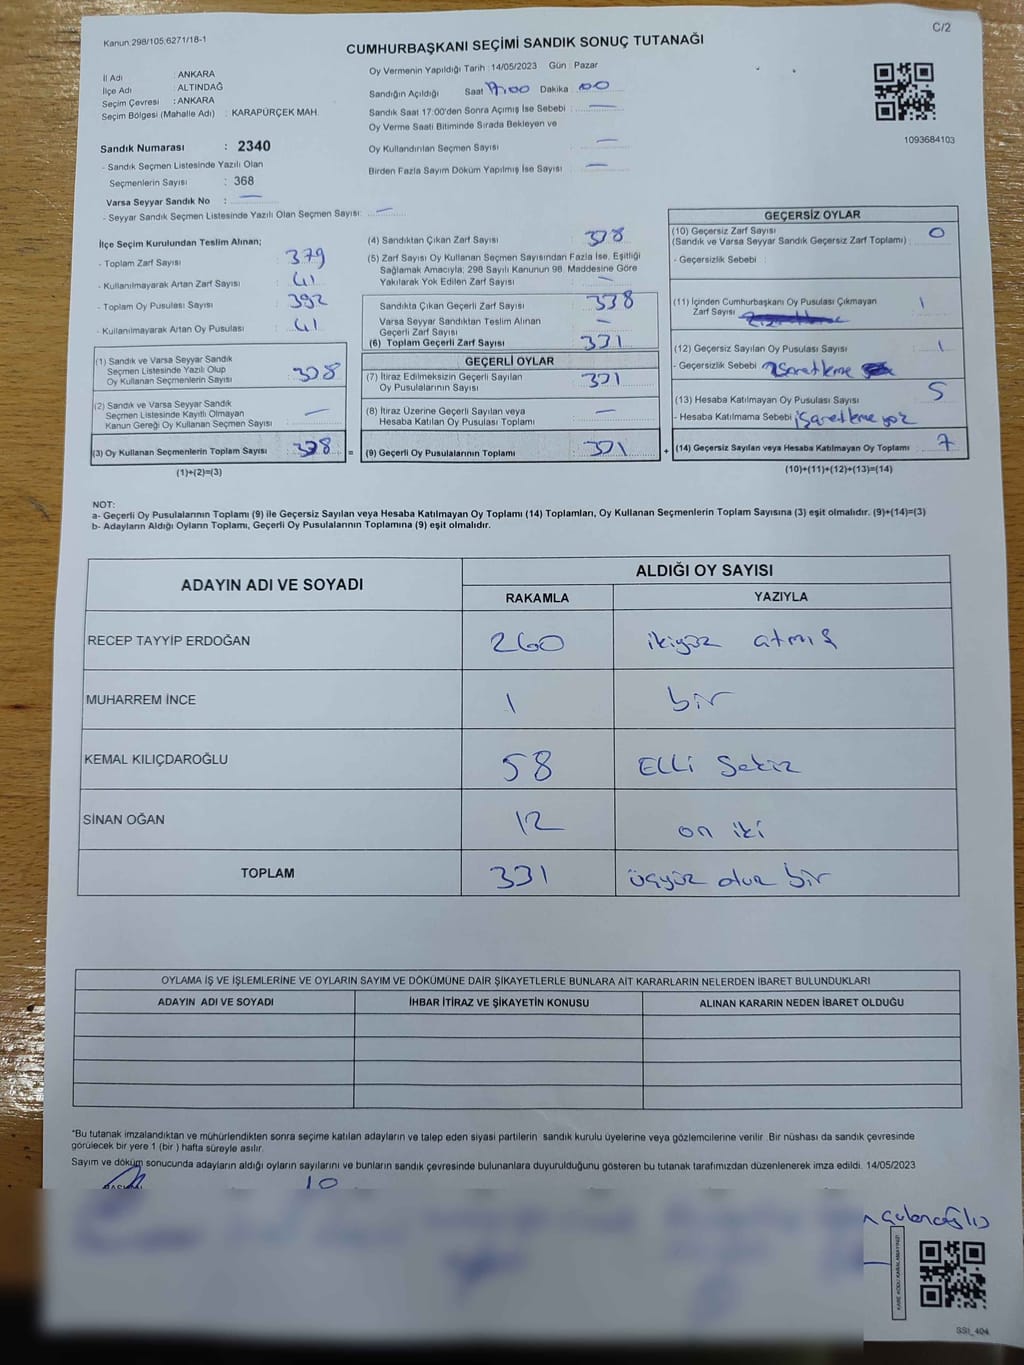 Kanun 298/105;6271/18-1
C/2
CUMHURBAŞKANI SEÇİMİ SANDIK SONUÇ TUTANAĞI
İl Adı : ANKARA
İlçe Adı : ALTINDAĞ
Seçim Çevresi : ANKARA
Seçim Bölgesi (Mahalle Adı) : KARAPÜRÇEK MAH.
Oy Vermenin Yapıldığı Tarih : 14/05/2023 Gün : Pazar
Sandığın Açıldığı Saat 17:00 Dakika 00
Sandık Saat 17:00'den Sonra Açımış İse Sebebi : —
Oy Verme Saati Bitiminde Sırada Bekleyen ve
Oy Kullandırılan Seçmen Sayısı : —
Birden Fazla Sayım Döküm Yapılmış İse Sayısı : —
1093684103
Sandık Numarası : 2340
- Sandık Seçmen Listesinde Yazılı Olan
Seçmenlerin Sayısı : 368
Varsa Seyyar Sandık No : —
- Seyyar Sandık Seçmen Listesinde Yazılı Olan Seçmen Sayısı: —
İlçe Seçim Kurulundan Teslim Alınan;
- Toplam Zarf Sayısı : 379
- Kullanılmayarak Artan Zarf Sayısı : 41
- Toplam Oy Pusulası Sayısı : 392
- Kullanılmayarak Artan Oy Pusulası : 41
(1) Sandık ve Varsa Seyyar Sandık
Seçmen Listesinde Yazılı Olup
Oy Kullanan Seçmenlerin Sayısı : 338
(2) Sandık ve Varsa Seyyar Sandık
Seçmen Listesinde Kayıtlı Olmayan
Kanun Gereği Oy Kullanan Seçmen Sayısı : —
(3) Oy Kullanan Seçmenlerin Toplam Sayısı : 338 =
(1)+(2)=(3)
(4) Sandıktan Çıkan Zarf Sayısı : 338
(5) Zarf Sayısı Oy Kullanan Seçmen Sayısından Fazla İse, Eşitliği
Sağlamak Amacıyla, 298 Sayılı Kanunun 98. Maddesine Göre
Yakılarak Yok Edilen Zarf Sayısı : —
Sandıkta Çıkan Geçerli Zarf Sayısı : 338
Varsa Seyyar Sandıktan Teslim Alınan
Geçerli Zarf Sayısı : —
(6) Toplam Geçerli Zarf Sayısı : 331
GEÇERLİ OYLAR
(7) İtiraz Edilmeksizin Geçerli Sayılan
Oy Pusulalarının Sayısı : 331
(8) İtiraz Üzerine Geçerli Sayılan veya
Hesaba Katılan Oy Pusulası Toplamı : —
(9) Geçerli Oy Pusulalarının Toplamı : 331 +
GEÇERSİZ OYLAR
(10) Geçersiz Zarf Sayısı
(Sandık ve Varsa Seyyar Sandık Geçersiz Zarf Toplamı) : 0
- Geçersizlik Sebebi :
(11) İçinden Cumhurbaşkanı Oy Pusulası Çıkmayan
Zarf Sayısı : 1
(12) Geçersiz Sayılan Oy Pusulası Sayısı : 1
- Geçersizlik Sebebi : işaretleme
(13) Hesaba Katılmayan Oy Pusulası Sayısı : 5
- Hesaba Katılmama Sebebi : işaretleme yok
(14) Geçersiz Sayılan veya Hesaba Katılmayan Oy Toplamı : 7
(10)+(11)+(12)+(13)=(14)
NOT:
a- Geçerli Oy Pusulalarının Toplamı (9) ile Geçersiz Sayılan veya Hesaba Katılmayan Oy Toplamı (14) Toplamları, Oy Kullanan Seçmenlerin Toplam Sayısına (3) eşit olmalıdır. (9)+(14)=(3)
b- Adayların Aldığı Oyların Toplamı, Geçerli Oy Pusulalarının Toplamına (9) eşit olmalıdır.
ADAYIN ADI VE SOYADI ALDIĞI OY SAYISI
RAKAMLA YAZIYLA
RECEP TAYYİP ERDOĞAN 260 ikiyüz atmış
MUHARREM İNCE 1 bir
KEMAL KILIÇDAROĞLU 58 Elli Sekiz
SİNAN OĞAN 12 on iki
TOPLAM 331 üçyüz otuz bir
OYLAMA İŞ VE İŞLEMLERİNE VE OYLARIN SAYIM VE DÖKÜMÜNE DAİR ŞİKAYETLERLE BUNLARA AİT KARARLARIN NELERDEN İBARET BULUNDUKLARI
ADAYIN ADI VE SOYADI İHBAR İTİRAZ VE ŞİKAYETİN KONUSU ALINAN KARARIN NEDEN İBARET OLDUĞU
*Bu tutanak imzalandıktan ve mühürlendikten sonra seçime katılan adayların ve talep eden siyasi partilerin sandık kurulu üyelerine veya gözlemcilerine verilir. Bir nüshası da sandık çevresinde
görülecek bir yere 1 (bir ) hafta süreyle asılır.
Sayım ve döküm sonucunda adayların aldığı oyların sayılarını ve bunların sandık çevresinde bulunanlara duyurulduğunu gösteren bu tutanak tarafımızdan düzenlenerek imza edildi. 14/05/2023
10
SSI_404